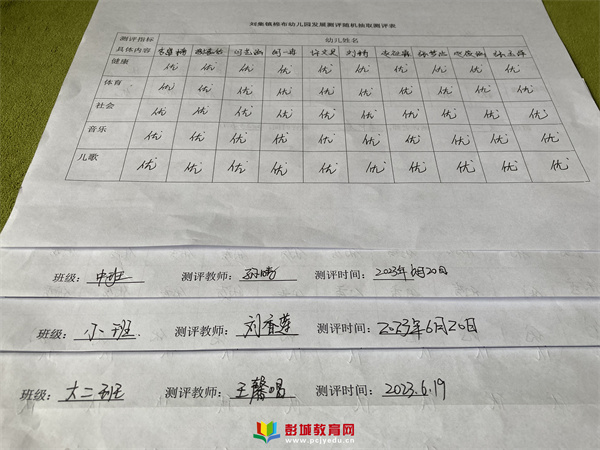 刘集镇棉布幼儿园发展测评随机抽取测评表
测评指标 幼儿姓名
具体内容
健康 优 优 优 优 优 优 优 优 优 优
体育 优 优 优 优 优 优 优 优 优 优
社会 优 优 优 优 优 优 优 优 优 优
音乐 优 优 优 优 优 优 优 优 优 优
儿歌 优 优 优 优 优 优 优 优 优 优
班级：中班 测评教师： 测评时间：2023年6月20日
班级：小一班 测评教师：刘香莲 测评时间：2023年6月20日
班级：大二班 测评教师：王馨唱 测评时间：2023.6.19
彭城教育网
www.pcjyedu.cn